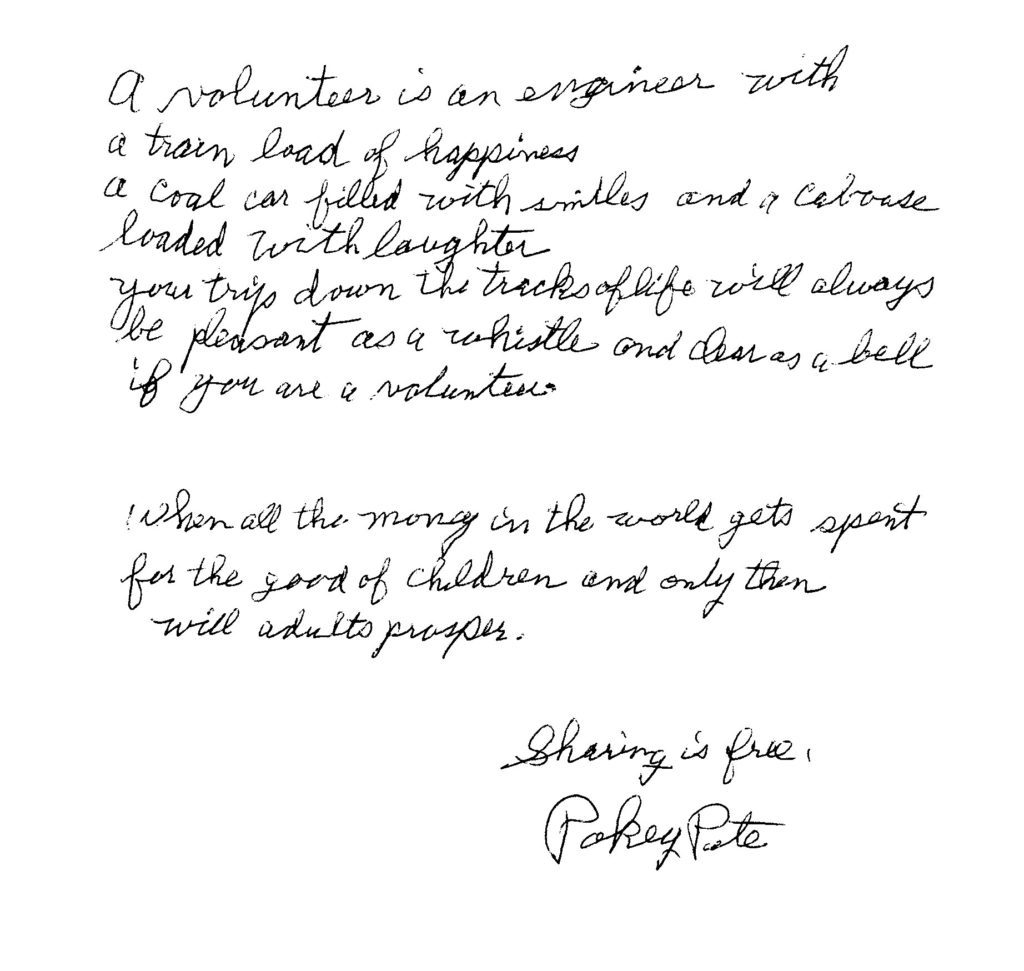 A volunteer is an engineer with
a train load of happiness
a coal car filled with smiles and a caboose
loaded with laughter
your trip down the tracks of life will always
be pleasant as a whistle and clear as a bell
if you are a volunteer.
When all the money in the world gets spent
for the good of children and only then
will adults prosper.
Sharing is free.
Pokey Pate